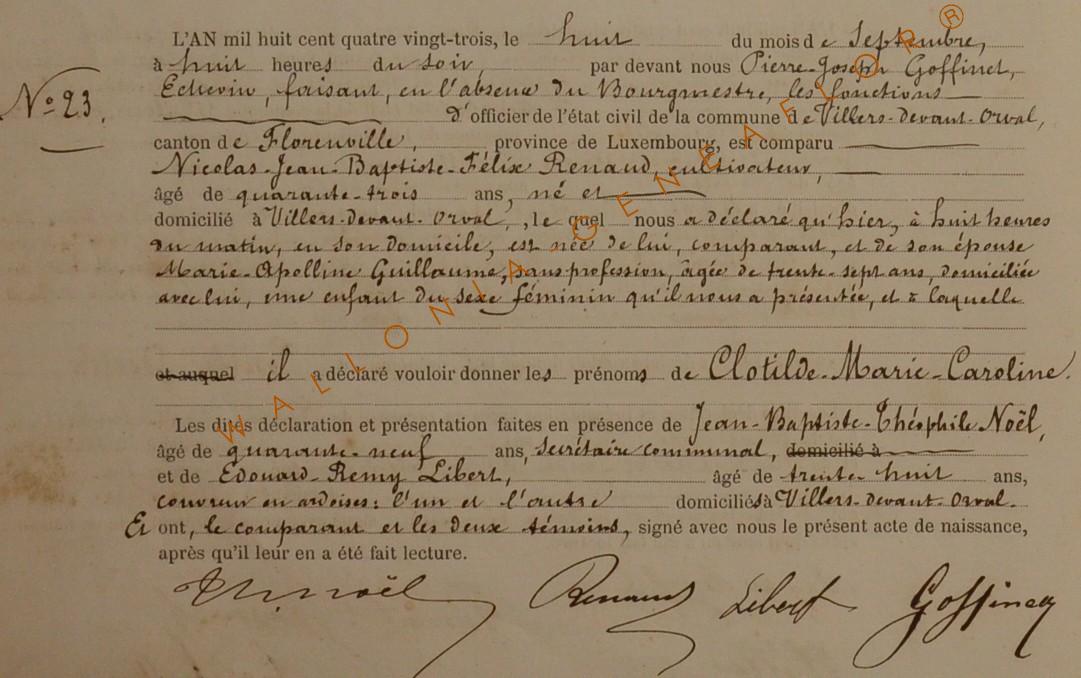 L'AN mil huit cent quatre vingt-trois, le huit du mois de Septembre,
à huit heures du soir, par devant nous Pierre-Joseph Goffinet,
Echevin, faisant, en l'absence du Bourgmestre, les fonctions
Nº 23.
d'officier de l'état civil de la commune de Villers-devant-Orval,
canton de Florenville, province de Luxembourg, est comparu
Nicolas-Jean-Baptiste-Félix Renaud, cultivateur,
âgé de quarante-trois ans, né et
domicilié à Villers-devant-Orval, lequel nous a déclaré qu'hier, à huit heures
du matin, en son domicile, est née de lui, comparant, et de son épouse
Marie-Apolline Guillaume, sans profession, âgée de trente-sept ans, domiciliée
avec lui, une enfant du sexe féminin qu'il nous a présentée, et à laquelle
et auquel il a déclaré vouloir donner les prénoms de Clotilde-Marie-Caroline.
Les dites déclaration et présentation faites en présence de Jean-Baptiste-Théophile Noël,
âgé de quarante-neuf ans, secrétaire communal, domicilié à
et de Edouard-Remy Libert, âgé de trente-huit ans,
couvreur en ardoises: l'un et l'autre domiciliés à Villers-devant-Orval.
Et ont, le comparant et les deux témoins, signé avec nous le présent acte de naissance,
après qu'il leur en a été fait lecture.
Th. Noël Renaud Libert Goffinet
WALLONIA GENEAFLOR ®